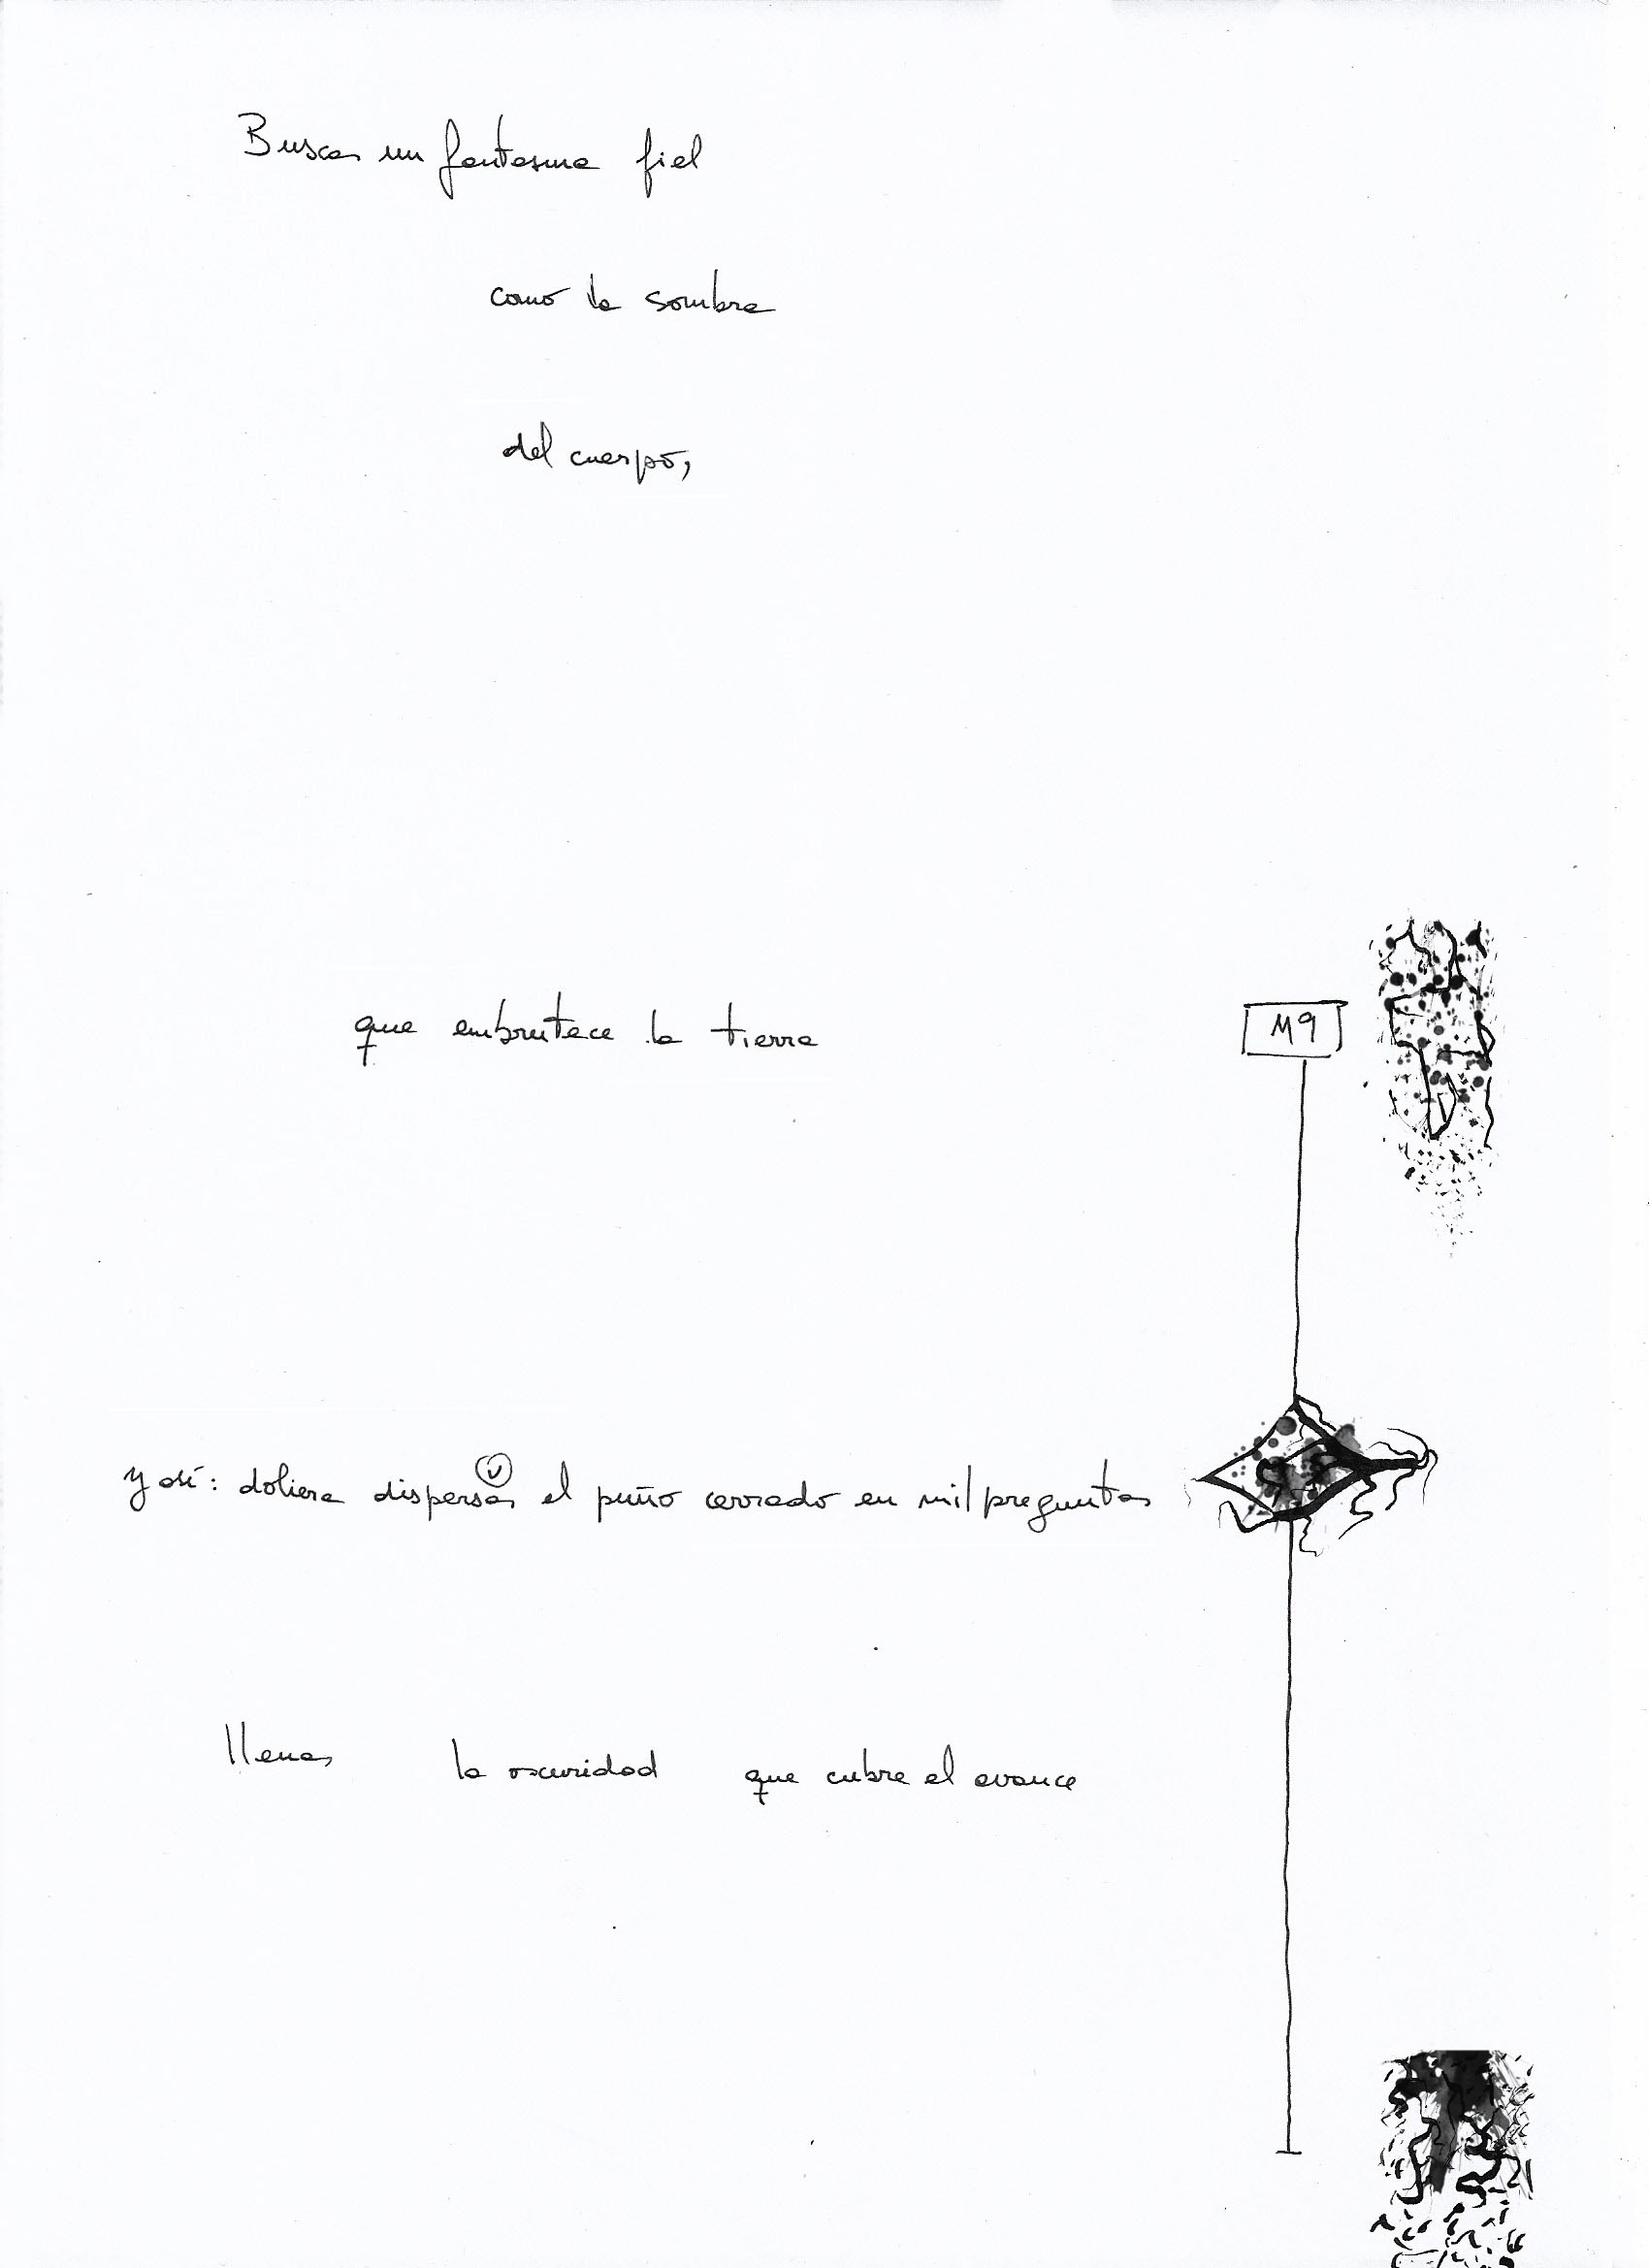 Buscas un fantasma fiel
como la sombra
del cuerpo,
que embrutece la tierra
M9
y así: doliera dispersas el puño cerrado en mil preguntas
llenas la oscuridad que cubre el avance